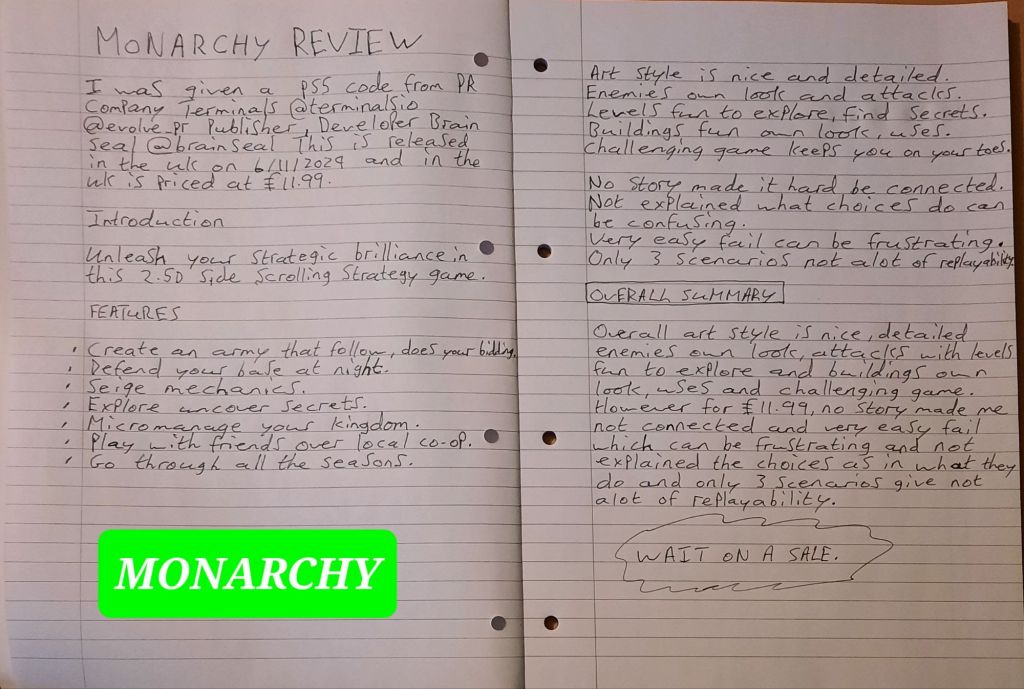 MONARCHY REVIEW
I was given a PS5 code from PR
Company Terminals @terminalsio
@evolve_pr Publisher, Developer Brain
Seal @brainseal This is released
in the uk on 6/11/2024 and in the
uk is priced at £11.99.
Introduction
Unleash your strategic brilliance in
this 2.5D side scrolling strategy game.
FEATURES
• Create an army that follow, does your bidding.
• Defend your base at night.
• Seige mechanics.
• Explore uncover secrets.
• Micromanage your kingdom.
• Play with friends over local co-op.
• Go through all the seasons.
MONARCHY
Art style is nice and detailed.
Enemies own look and attacks.
Levels fun to explore, find secrets.
Buildings fun own look, uses.
Challenging game keeps you on your toes.
No story made it hard be connected.
Not explained what choices do can
be confusing.
Very easy fail can be frustrating.
Only 3 scenarios not alot of replayability.
OVERALL SUMMARY
Overall art style is nice, detailed
enemies own look, attacks with levels
fun to explore and buildings own
look, uses and challenging game.
However for £11.99, no story made me
not connected and very easy fail
which can be frustrating and not
explained the choices as in what they
do and only 3 scenarios give not
alot of replayability.
WAIT ON A SALE.